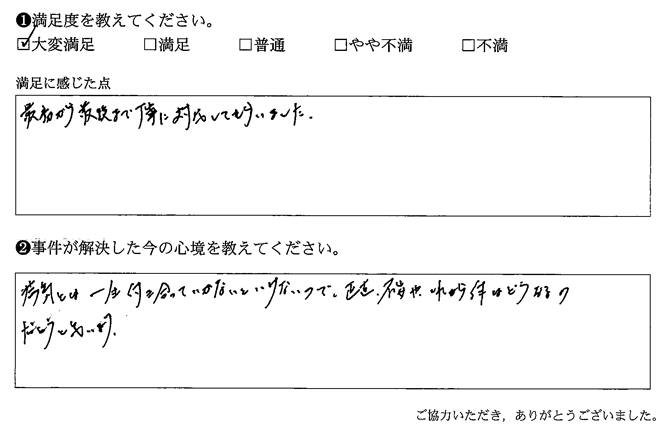 ❶満足度を教えてください。
☑大変満足 □満足 □普通 □やや不満 □不満
満足に感じた点
最初から最後まで丁寧に対応してもらいました。
❷事件が解決した今の心境を教えてください。
病気とは一生付き合っていかないといけないので、正直、不安や、これから体はどうなるの
だろうと思います。
ご協力いただき，ありがとうございました。